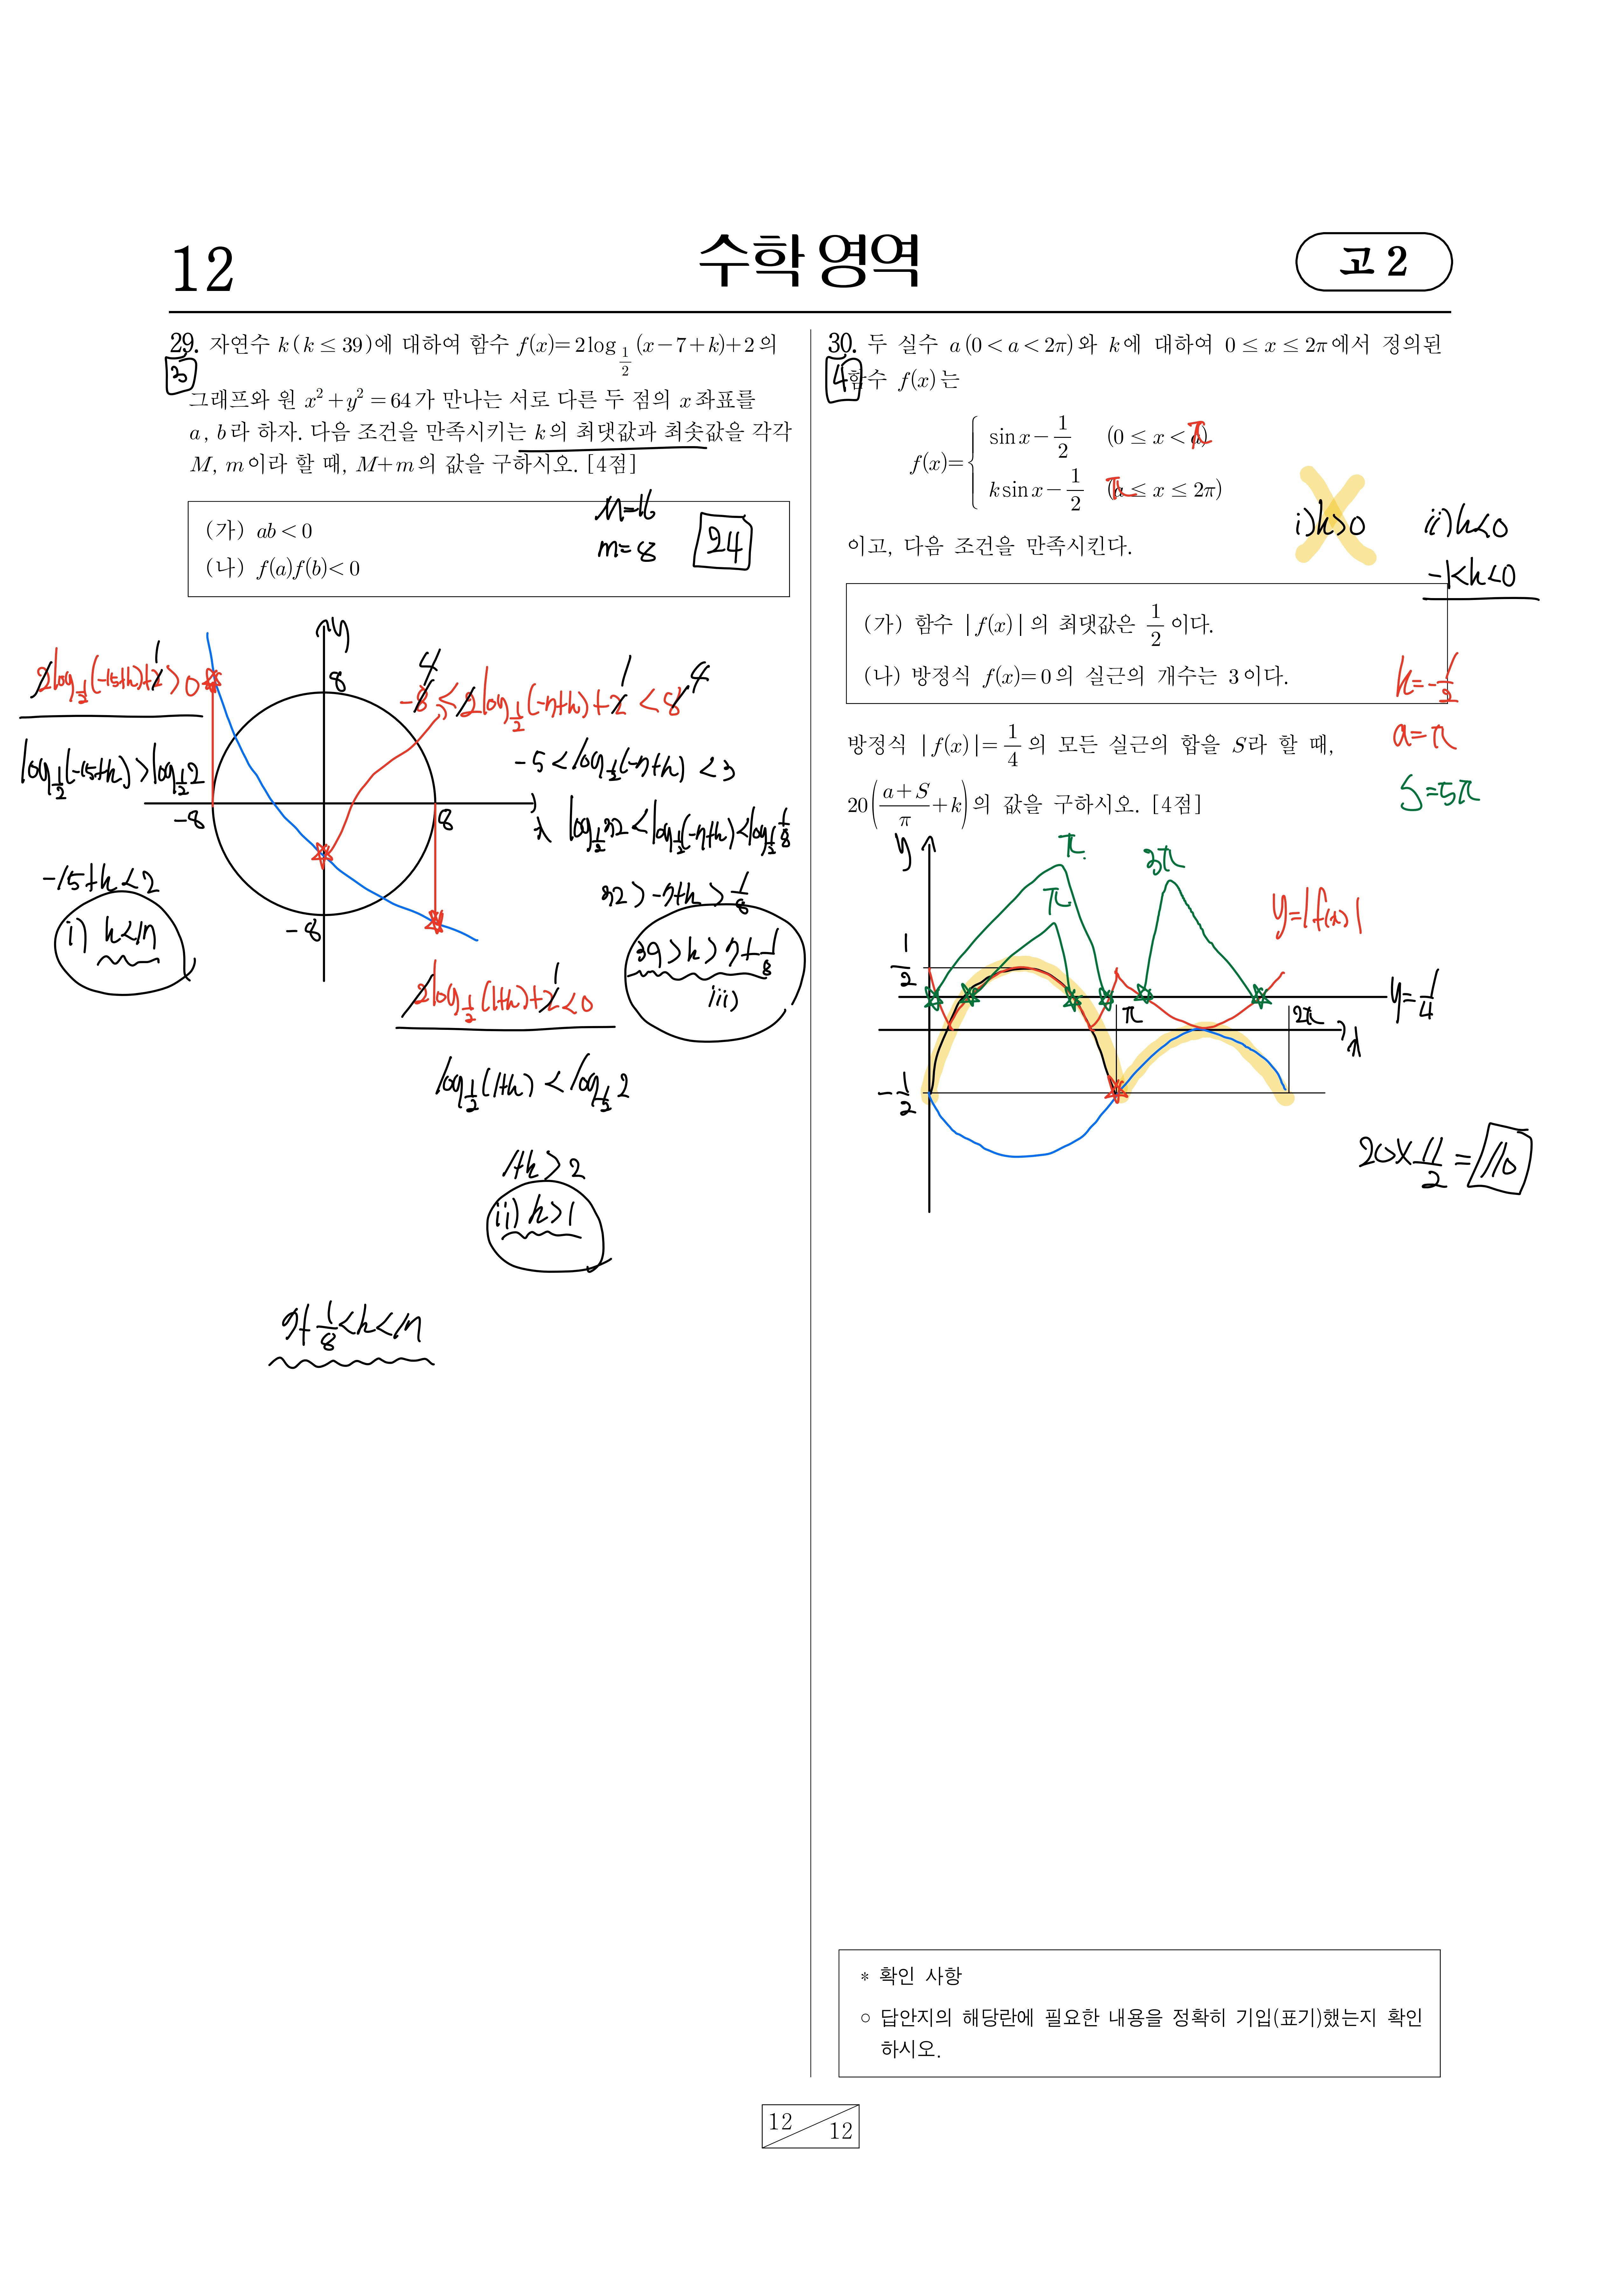 12
수학 영역
고 2
29. 자연수 k(k ≤ 39)에 대하여 함수 f(x)=2log_{1/2}(x-7+k)+2의
그래프와 원 x²+y²=64가 만나는 서로 다른 두 점의 x좌표를
a, b라 하자. 다음 조건을 만족시키는 k의 최댓값과 최솟값을 각각
M, m이라 할 때, M+m의 값을 구하시오. [4점]
3
(가) ab<0
(나) f(a)f(b)<0
M=16
m=8
24
y
8
-8
8
-8
x
2log_{1/2}(-15+k)+2>0
1
log_{1/2}(-15+k)>log_{1/2}2
-15+k<2
i) k<17
4
1
4
-8<2log_{1/2}(-7+k)+2<8
-5<log_{1/2}(-7+k)<3
log_{1/2}32<log_{1/2}(-7+k)<log_{1/2}1/8
32>-7+k>1/8
39>k>7+1/8
iii)
1
2log_{1/2}(1+k)+2<0
log_{1/2}(1+k)<log_{1/2}2
1+k>2
ii) k>1
7+1/8<k<17
30. 두 실수 a(0<a<2π)와 k에 대하여 0≤x≤2π에서 정의된
함수 f(x)는
4
f(x)={ sinx-1/2 (0≤x<a)
ksinx-1/2 (a≤x≤2π)
π
π
이고, 다음 조건을 만족시킨다.
i) k>0
ii) k<0
-1<k<0
(가) 함수 |f(x)|의 최댓값은 1/2이다.
(나) 방정식 f(x)=0의 실근의 개수는 3이다.
방정식 |f(x)|=1/4의 모든 실근의 합을 S라 할 때,
20((a+S)/π+k)의 값을 구하시오. [4점]
k=-1/2
a=π
S=5π
y
π
π
3π
y=|f(x)|
1/2
y=1/4
π
2π
x
-1/2
20×11/2=110
* 확인 사항
○ 답안지의 해당란에 필요한 내용을 정확히 기입(표기)했는지 확인
하시오.
12
12